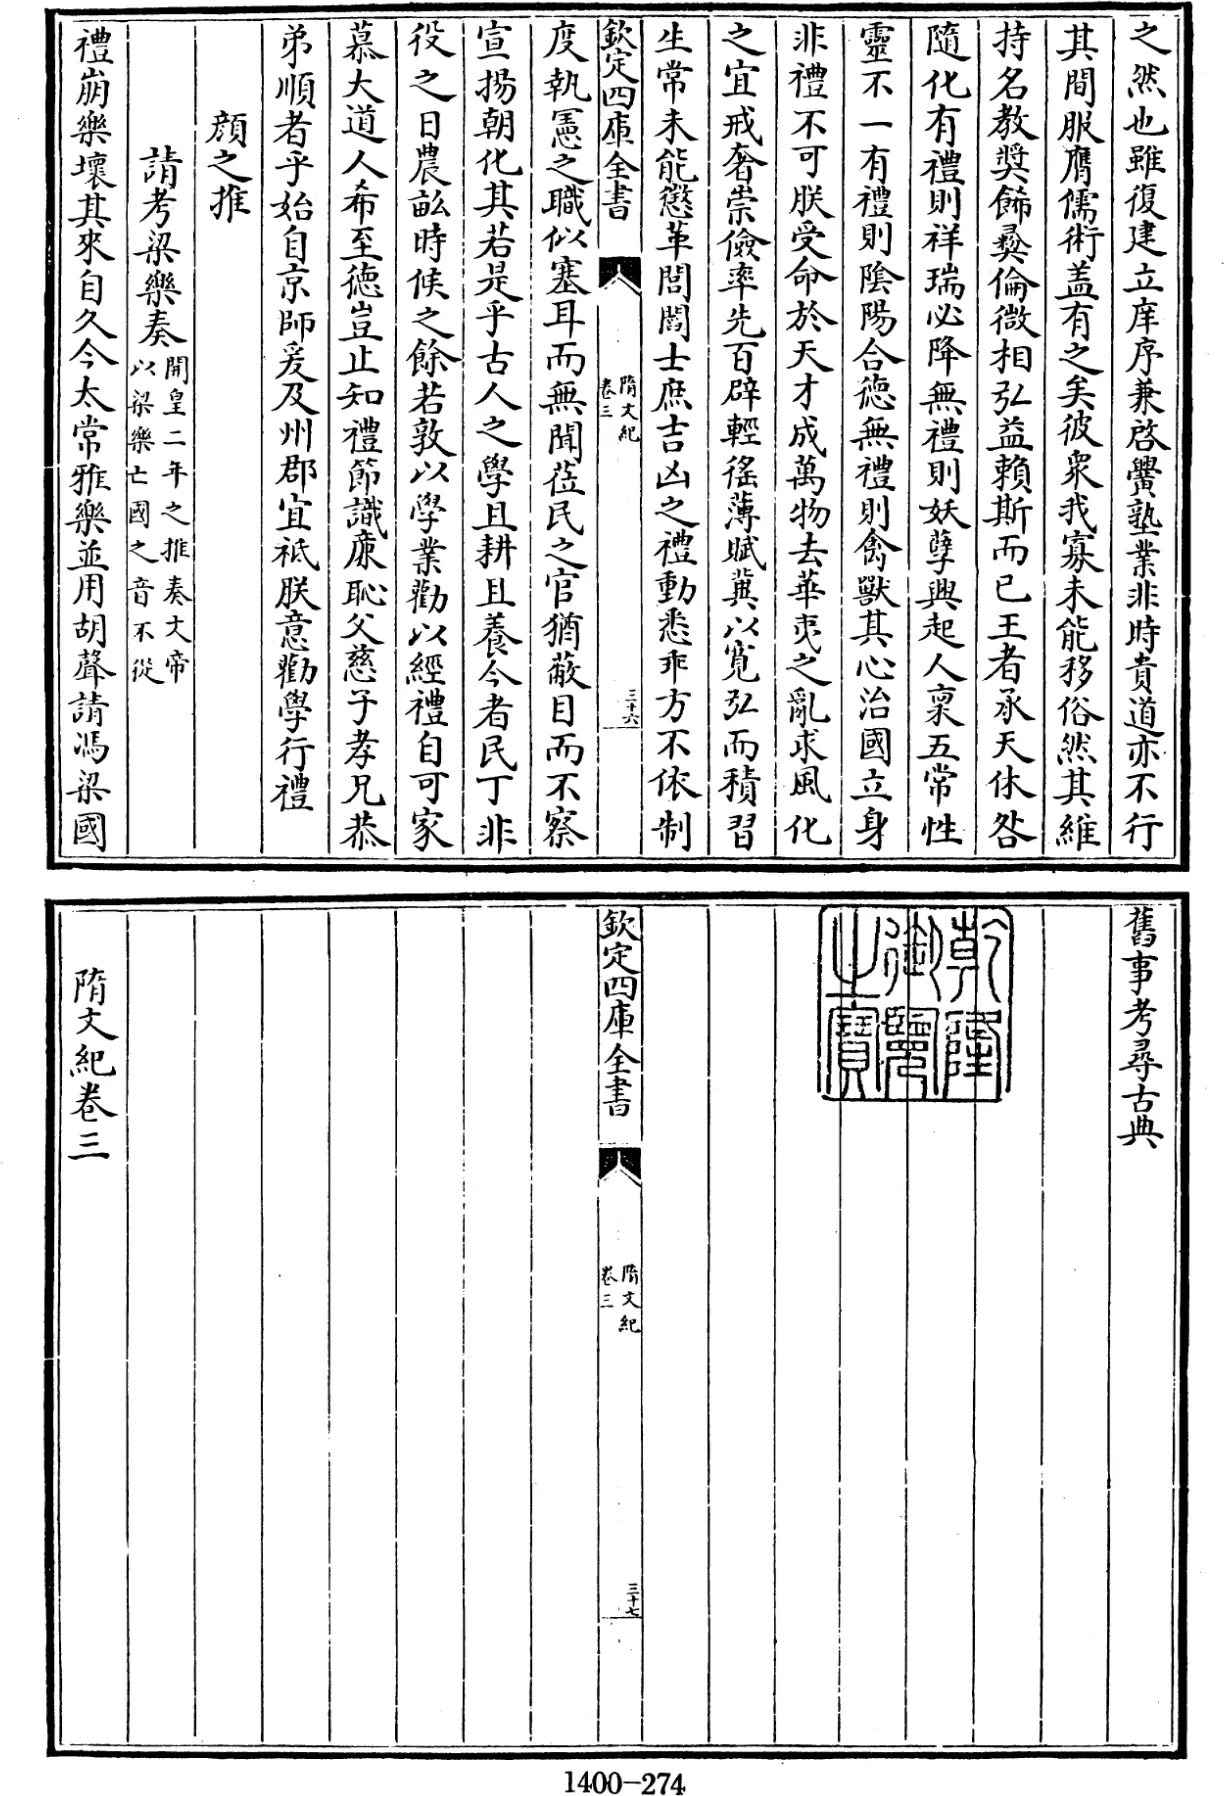 之然也雖復建立庠序兼啓黌塾業非時貴道亦不行
其間服膺儒術蓋有之矣彼衆我寡未能移俗然其維
持名教奬飾彛倫微相弘益賴斯而已王者承天休咎
隨化有禮則祥瑞必降無禮則妖孽興起人稟五常性
靈不一有禮則陰陽合德無禮則禽獸其心治國立身
非禮不可朕受命於天才成萬物去華夷之亂求風化
之宜戒奢崇儉率先百辟輕徭薄賦冀以寛弘而積習
生常未能懲革閭閻士庶吉凶之禮動悉乖方不依制
欽定四庫全書
隋文紀
卷三
三十六
度執憲之職似塞耳而無聞莅民之官猶蔽目而不察
宣揚朝化其若是乎古人之學且耕且養今者民丁非
役之日農畝時候之餘若敦以學業勸以經禮自可家
慕大道人希至德豈止知禮節識廉恥父慈子孝兄恭
弟順者乎始自京師爰及州郡宜祗朕意勸學行禮
顔之推
請考梁樂奏開皇二年之推奏文帝
以梁樂亡國之音不從
禮崩樂壞其來自久今太常雅樂並用胡聲請馮梁國
舊事考尋古典
乾隆御覽之寶
欽定四庫全書
隋文紀
卷三
三十七
隋文紀卷三
1400-274